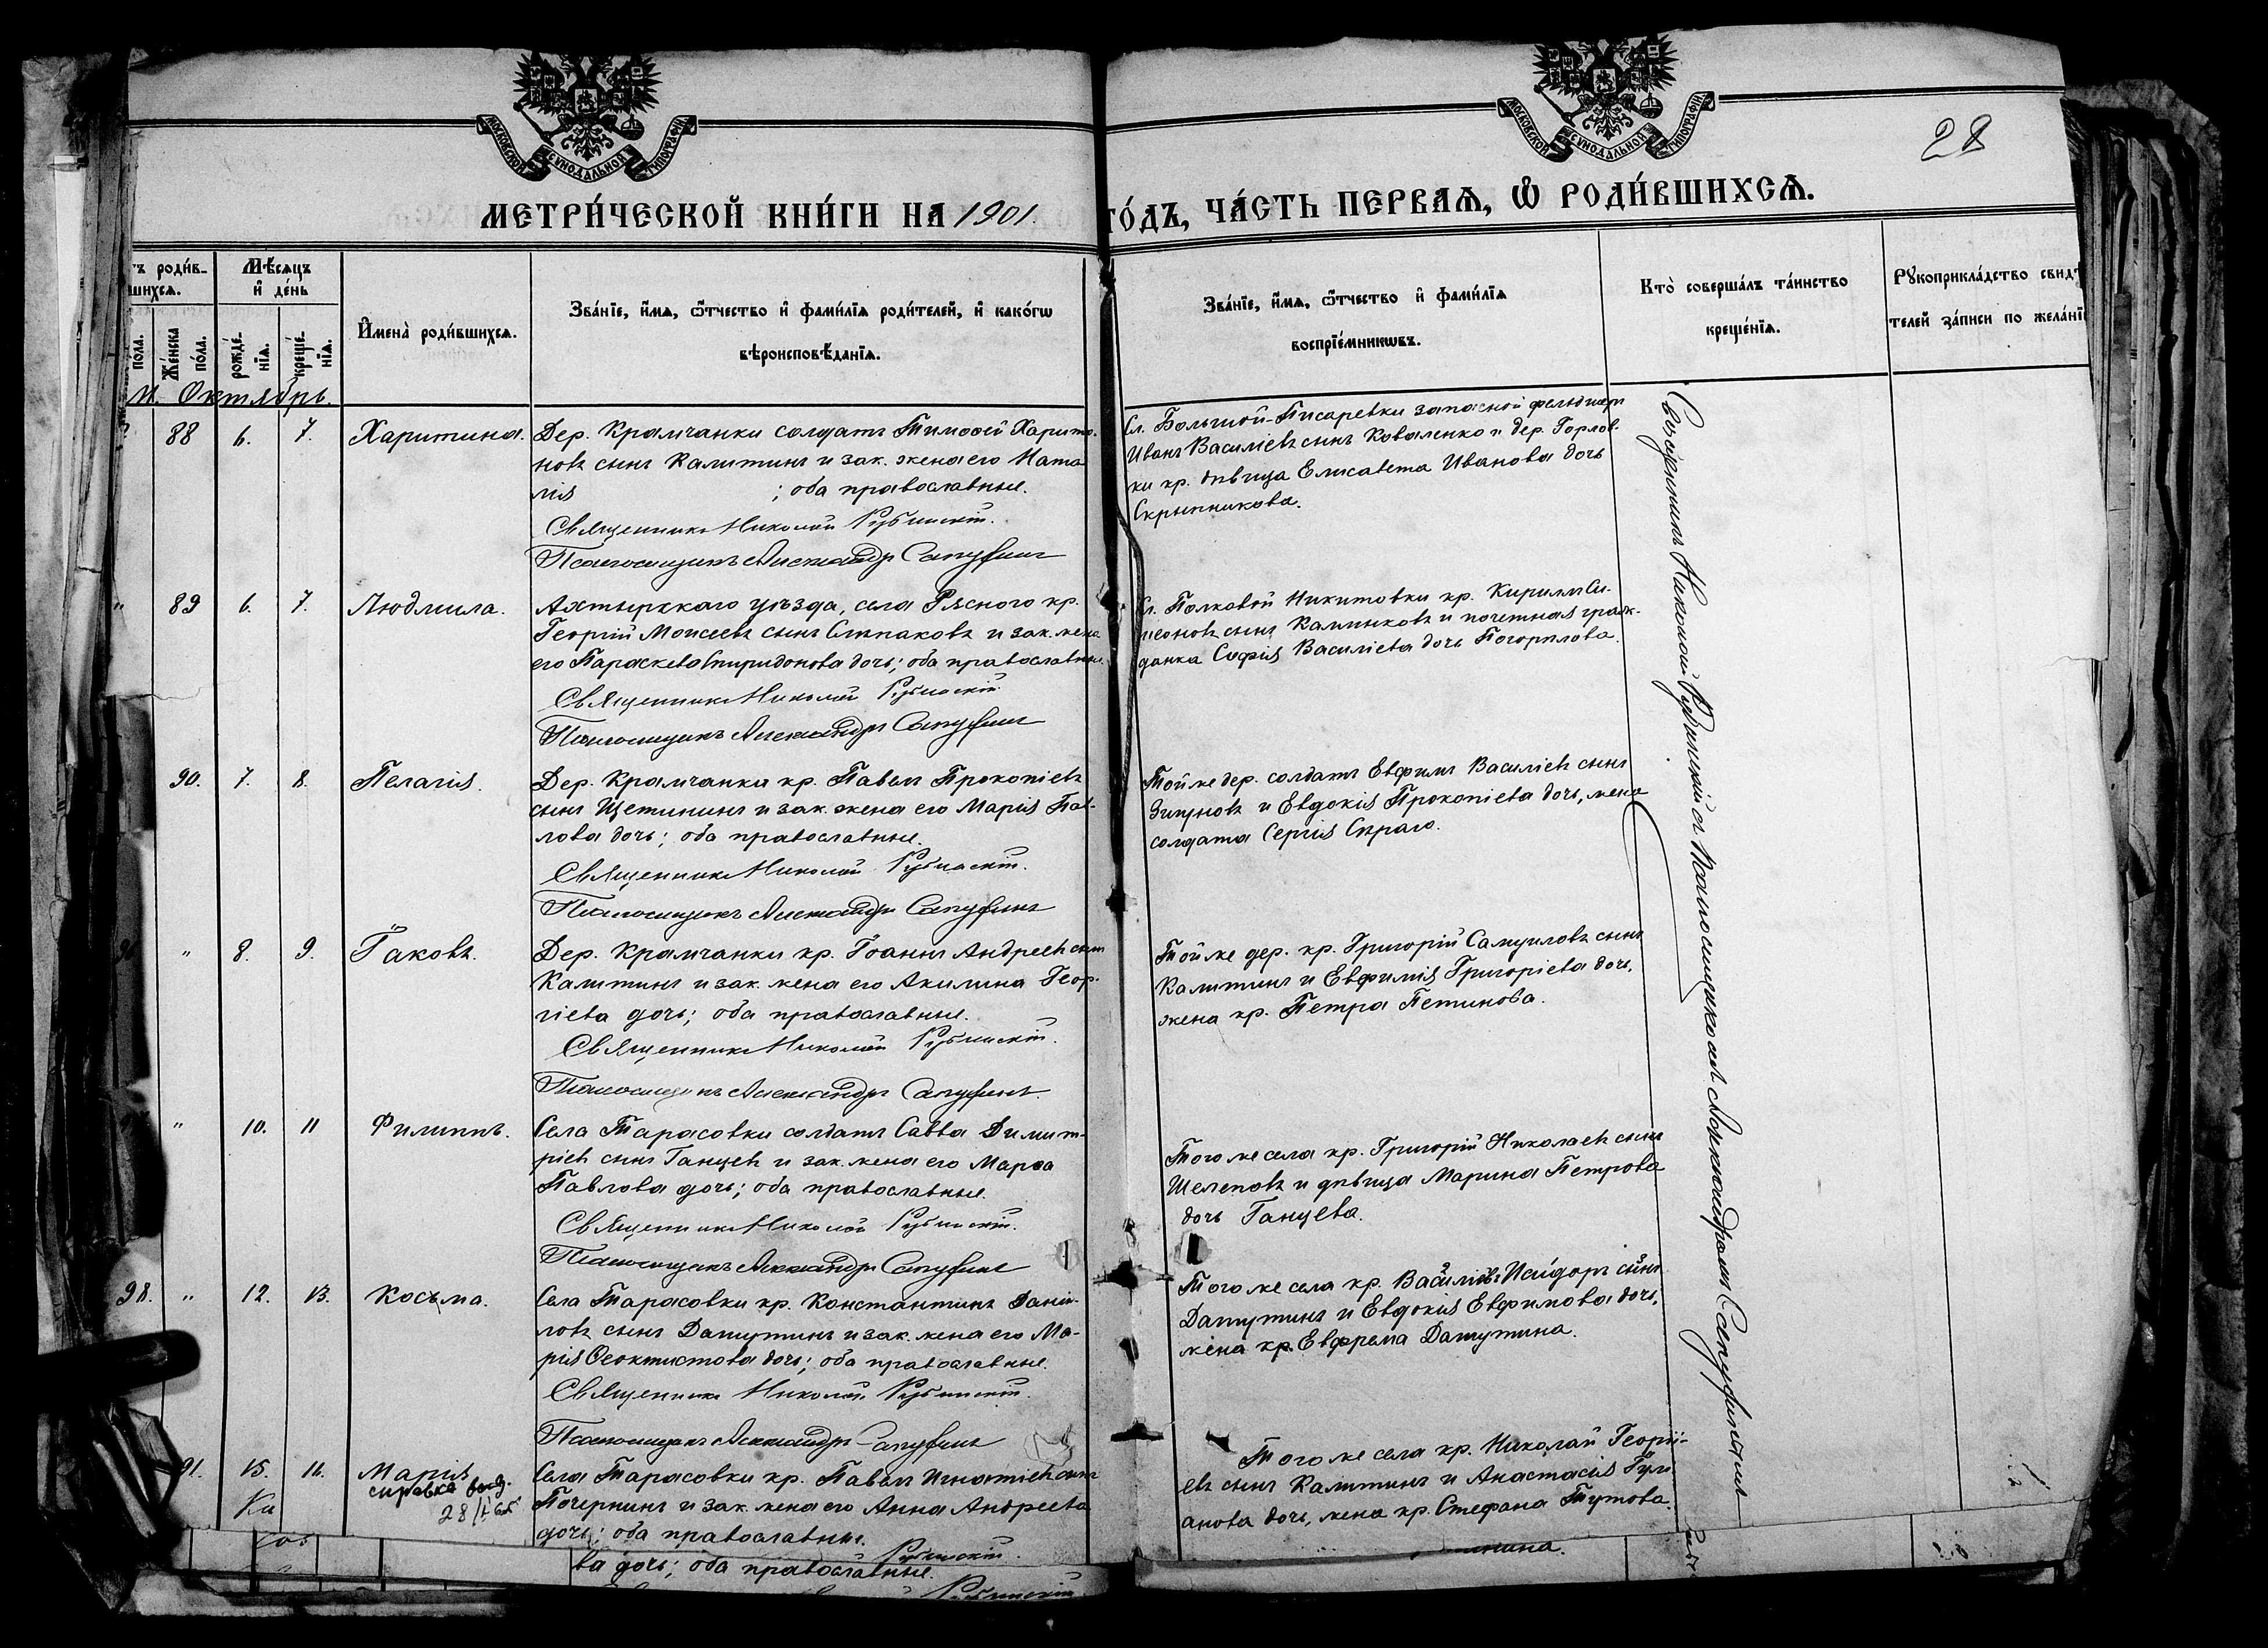 МОСКОВСКОЙ СѴНОДАЛЬНОЙ ТИПОГРАФІИ
МОСКОВСКОЙ СѴНОДАЛЬНОЙ ТИПОГРАФІИ
28
МЕТРИ́ЧЕСКОЙ КНИ́ГИ НА 1901. ГО́ДЪ, ЧА́СТЬ ПЕРВАѦ, Ѡ҆ РОДИ́ВШИХСѦ.
роди́в-
шихсѧ.
Мѣ́сѧцъ
и҆ де́нь
по́ла.
Же́нска
по́ла.
рожде́-
нїѧ.
креще́-
нїѧ.
И҆мена̀ роди́вшихсѧ.
Зва́нїе, и҆́мѧ, ѻ҆́тчество и҆ фами́лїѧ роди́телей, и҆ како́гѡ
вѣроисповѣ́данїѧ.
Зва́нїе, и҆́мѧ, ѻ҆́тчество и҆ фами́лїѧ
воспрїе́мникѡвъ.
Кто̀ соверша́лъ та́инство
креще́нїѧ.
Рꙋкоприкла́дство свидѣ́
телей за́писи по жела́нї
М. Октябрь.
88 6. 7. Харитина. Дер. Крамчанки солдатъ Тимоѳей Харито-
новъ сынъ Калитинъ и зак. жена его Ната
лія ; оба православные.
Священникъ Николай Рубинскій.
Псаломщикъ Александръ Сапухинъ
Сл. Большой-Писаревки запасной фельдшеръ
Иванъ Василіевъ сынъ Коваленко и дер. Горлов-
ки кр. дѣвица Елисавета Иванова дочь
Скрыпникова.
89 6. 7. Людмила. Ахтырскаго уѣзда, села Ряснаго кр.
Георгій Моисеевъ сынъ Слѣпаковъ и зак. жена
его Параскева Спиридонова дочь; оба православные.
Священникъ Николай Рубинскій
Псаломщикъ Александръ Сапухинъ
Сл. Полковой Никитовки кр. Кириллъ Си-
меоновъ сынъ Калинковъ и почетная граж-
данка Софія Василіева дочь Погорилова.
90. 7. 8. Пелагія. Дер. Крамчанки кр. Павелъ Прокопіевъ
сынъ Щетининъ и зак. жена его Марія Пав-
лова дочь; оба православные.
Священникъ Николай Рубинскій.
Псаломщикъ Александръ Сапухинъ
Той же дер. солдатъ Евфимъ Василіевъ сынъ
Зигуновъ и Евдокія Прокопіева дочь, жена
солдата Сергія Сѣраго.
" 8. 9. Іаковъ. Дер. Крамчанки кр. Іоаннъ Андреевъ сынъ
Калитинъ и зак. жена его Акилина Геор-
гіева дочь; оба православные.
Священникъ Николай Рубинскій.
Псаломщикъ Александръ Сапухинъ.
Той же дер. кр. Григорій Самуиловъ сынъ
Калитинъ и Евфимія Григоріева дочь,
жена кр. Петра Петинова.
" 10. 11 Филиппъ. Села Тарасовки солдатъ Савва Димит-
ріевъ сынъ Ганцевъ и зак. жена его Марѳа
Павлова дочь; оба православные.
Священникъ Николай Рубинскій.
Псаломщикъ Александръ Сапухинъ
Того же села кр. Григорій Николаевъ сынъ
Шелеповъ и дѣвица Марина Петрова
дочь Ганцева.
98. " 12. 13. Косьма. Села Тарасовки кр. Константинъ Даніи-
ловъ сынъ Дашутинъ и зак. жена его Ма-
рія Ѳеоктистова дочь; оба православные.
Священникъ Николай Рубинскій.
Псаломщикъ Александръ Сапухинъ
Того же села кр. Василіевъ Исидоръ сынъ
Дашутинъ и Евдокія Евфимова дочь,
жена кр. Евфрема Дашутина.
91. 15. 16. Марія справка выд. 28/ Села Тарасовки кр. Павелъ Игнатіевъ сынъ
Почернинъ и зак. жена его Анна Андреева
дочь; оба православные.
Рубинскій.
Того же села кр. Николай Георгі-
евъ сынъ Калитинъ и Анастасія Гули
анова дочь, жена кр. Стефана Тутова.
ва дочь; оба православные.
Рубинскій
Священникъ Николай Рубинскій съ Псаломщикомъ Александромъ Сапухинымъ